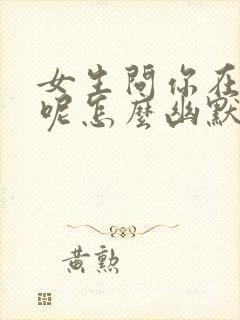 女生問你在
呢怎麼幽默
黃勲